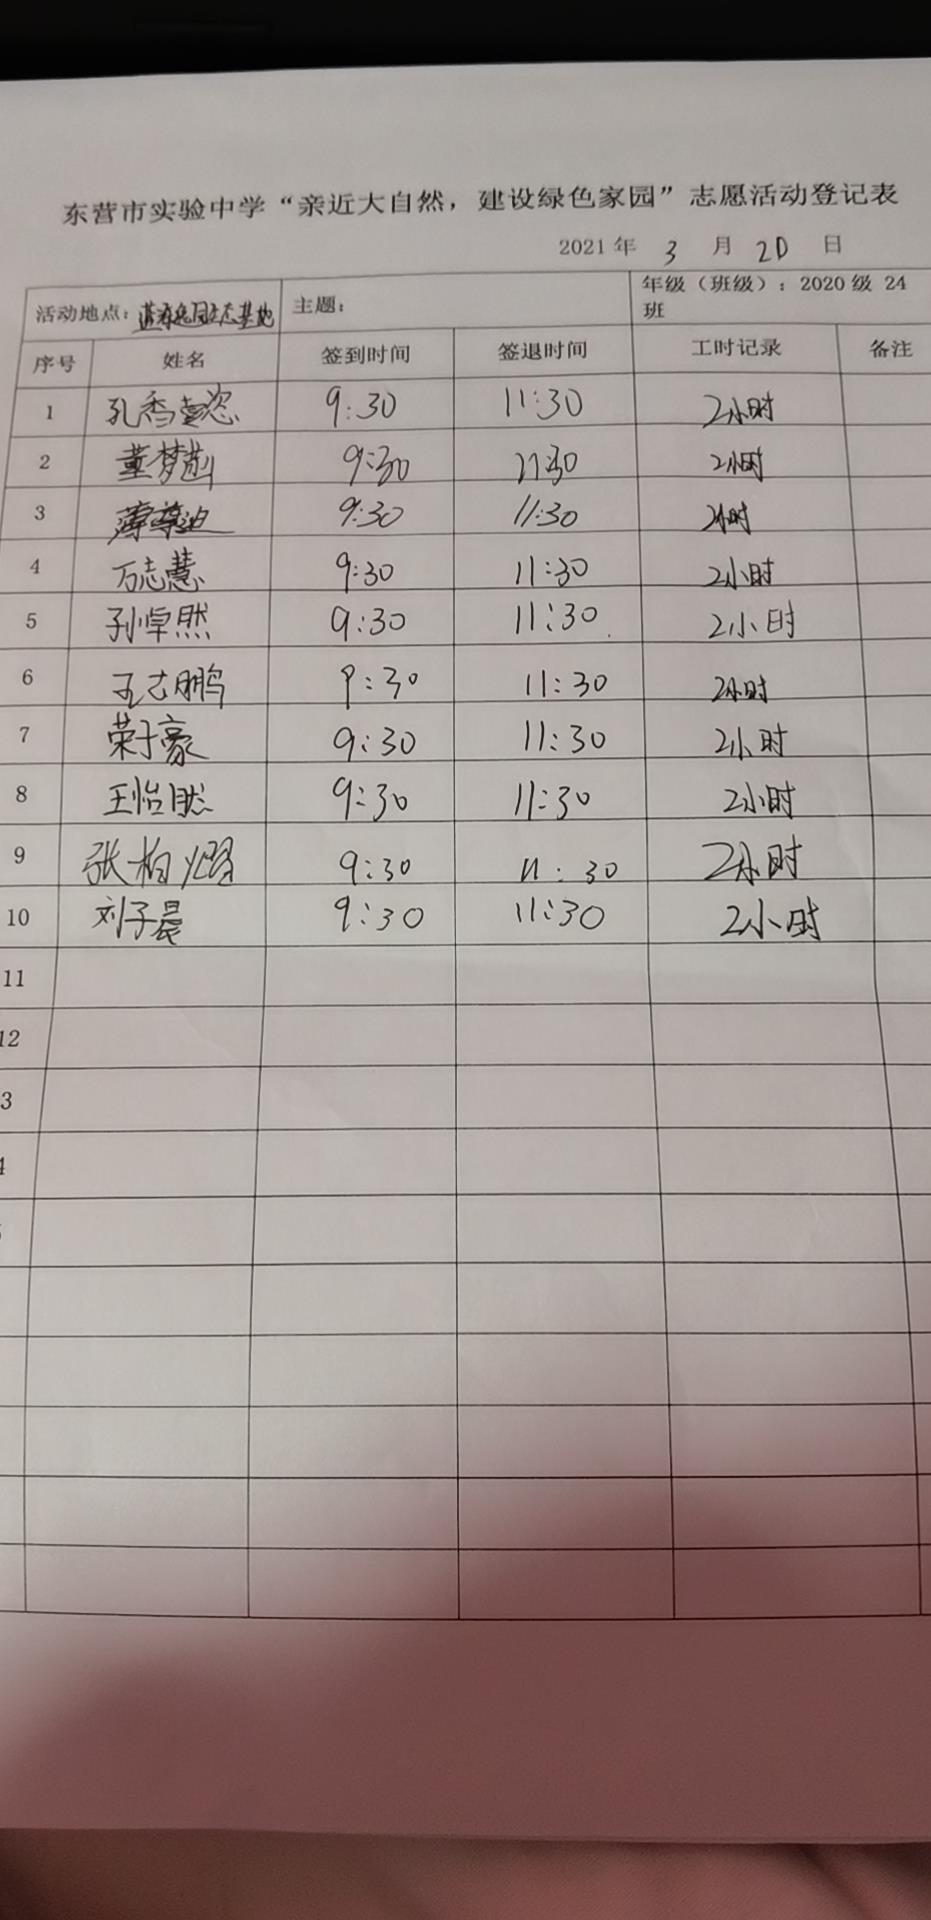 东营市实验中学“亲近大自然，建设绿色家园”志愿活动登记表
2021 年 3 月 20 日
活动地点： 主题： 年级（班级）：2020 级 24 班
序号 姓名 签到时间 签退时间 工时记录 备注
1 孔香 9:30 11:30 2小时
2 董梦 9:30 11:30 2小时
3 9:30 11:30 2小时
4 万志慧 9:30 11:30 2小时
5 孙焯然 9:30 11:30 2小时
6 鹏 9:30 11:30 2小时
7 荣于豪 9:30 11:30 2小时
8 王怡然 9:30 11:30 2小时
9 张柏熠 9:30 11:30 2小时
10 刘子晨 9:30 11:30 2小时
11
12
3
4